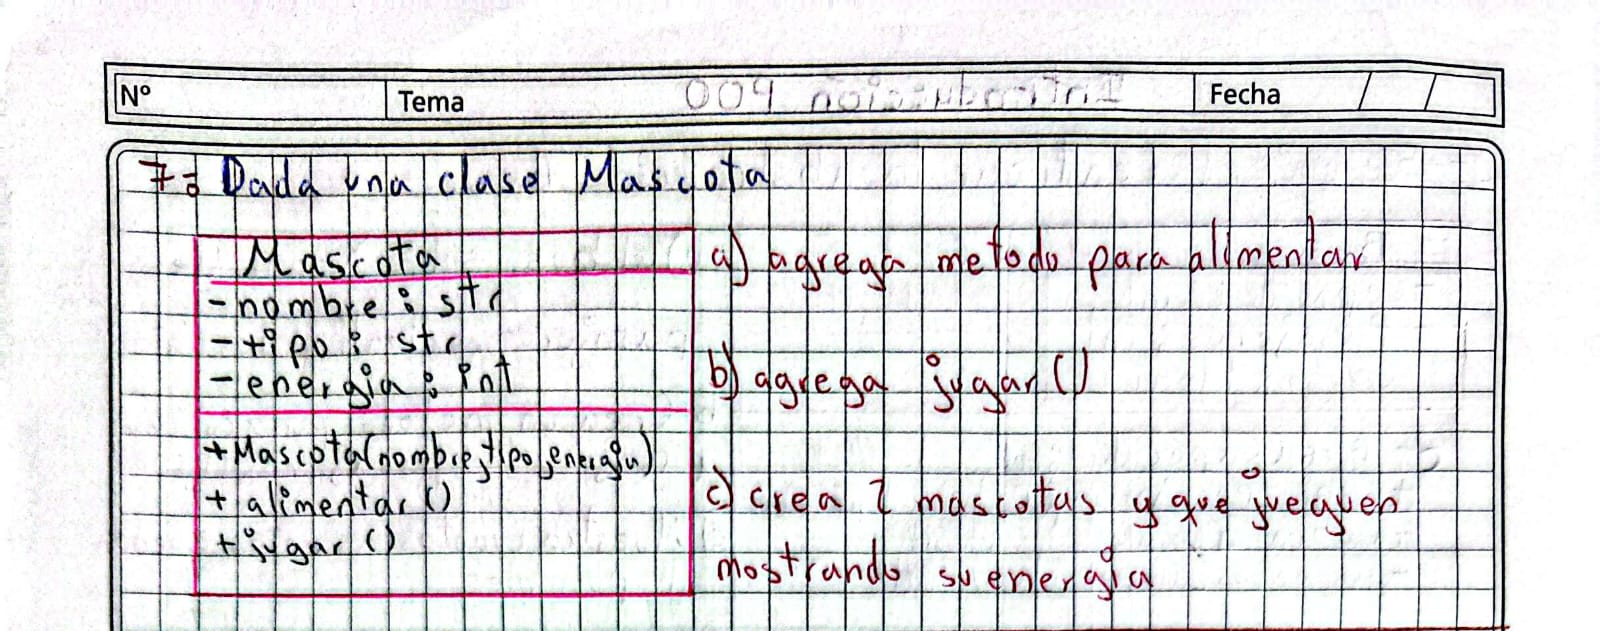 Nº Tema Introducción POO Fecha / /
7: Dada una clase Mascota
Mascota
- nombre : str
- tipo : str
- energia : int
+ Mascota(nombre, tipo, energia)
+ alimentar ()
+ jugar ()
a) agrega metodo para alimentar
b) agrega jugar ()
c) crea 2 mascotas y que jueguen
mostrando su energia